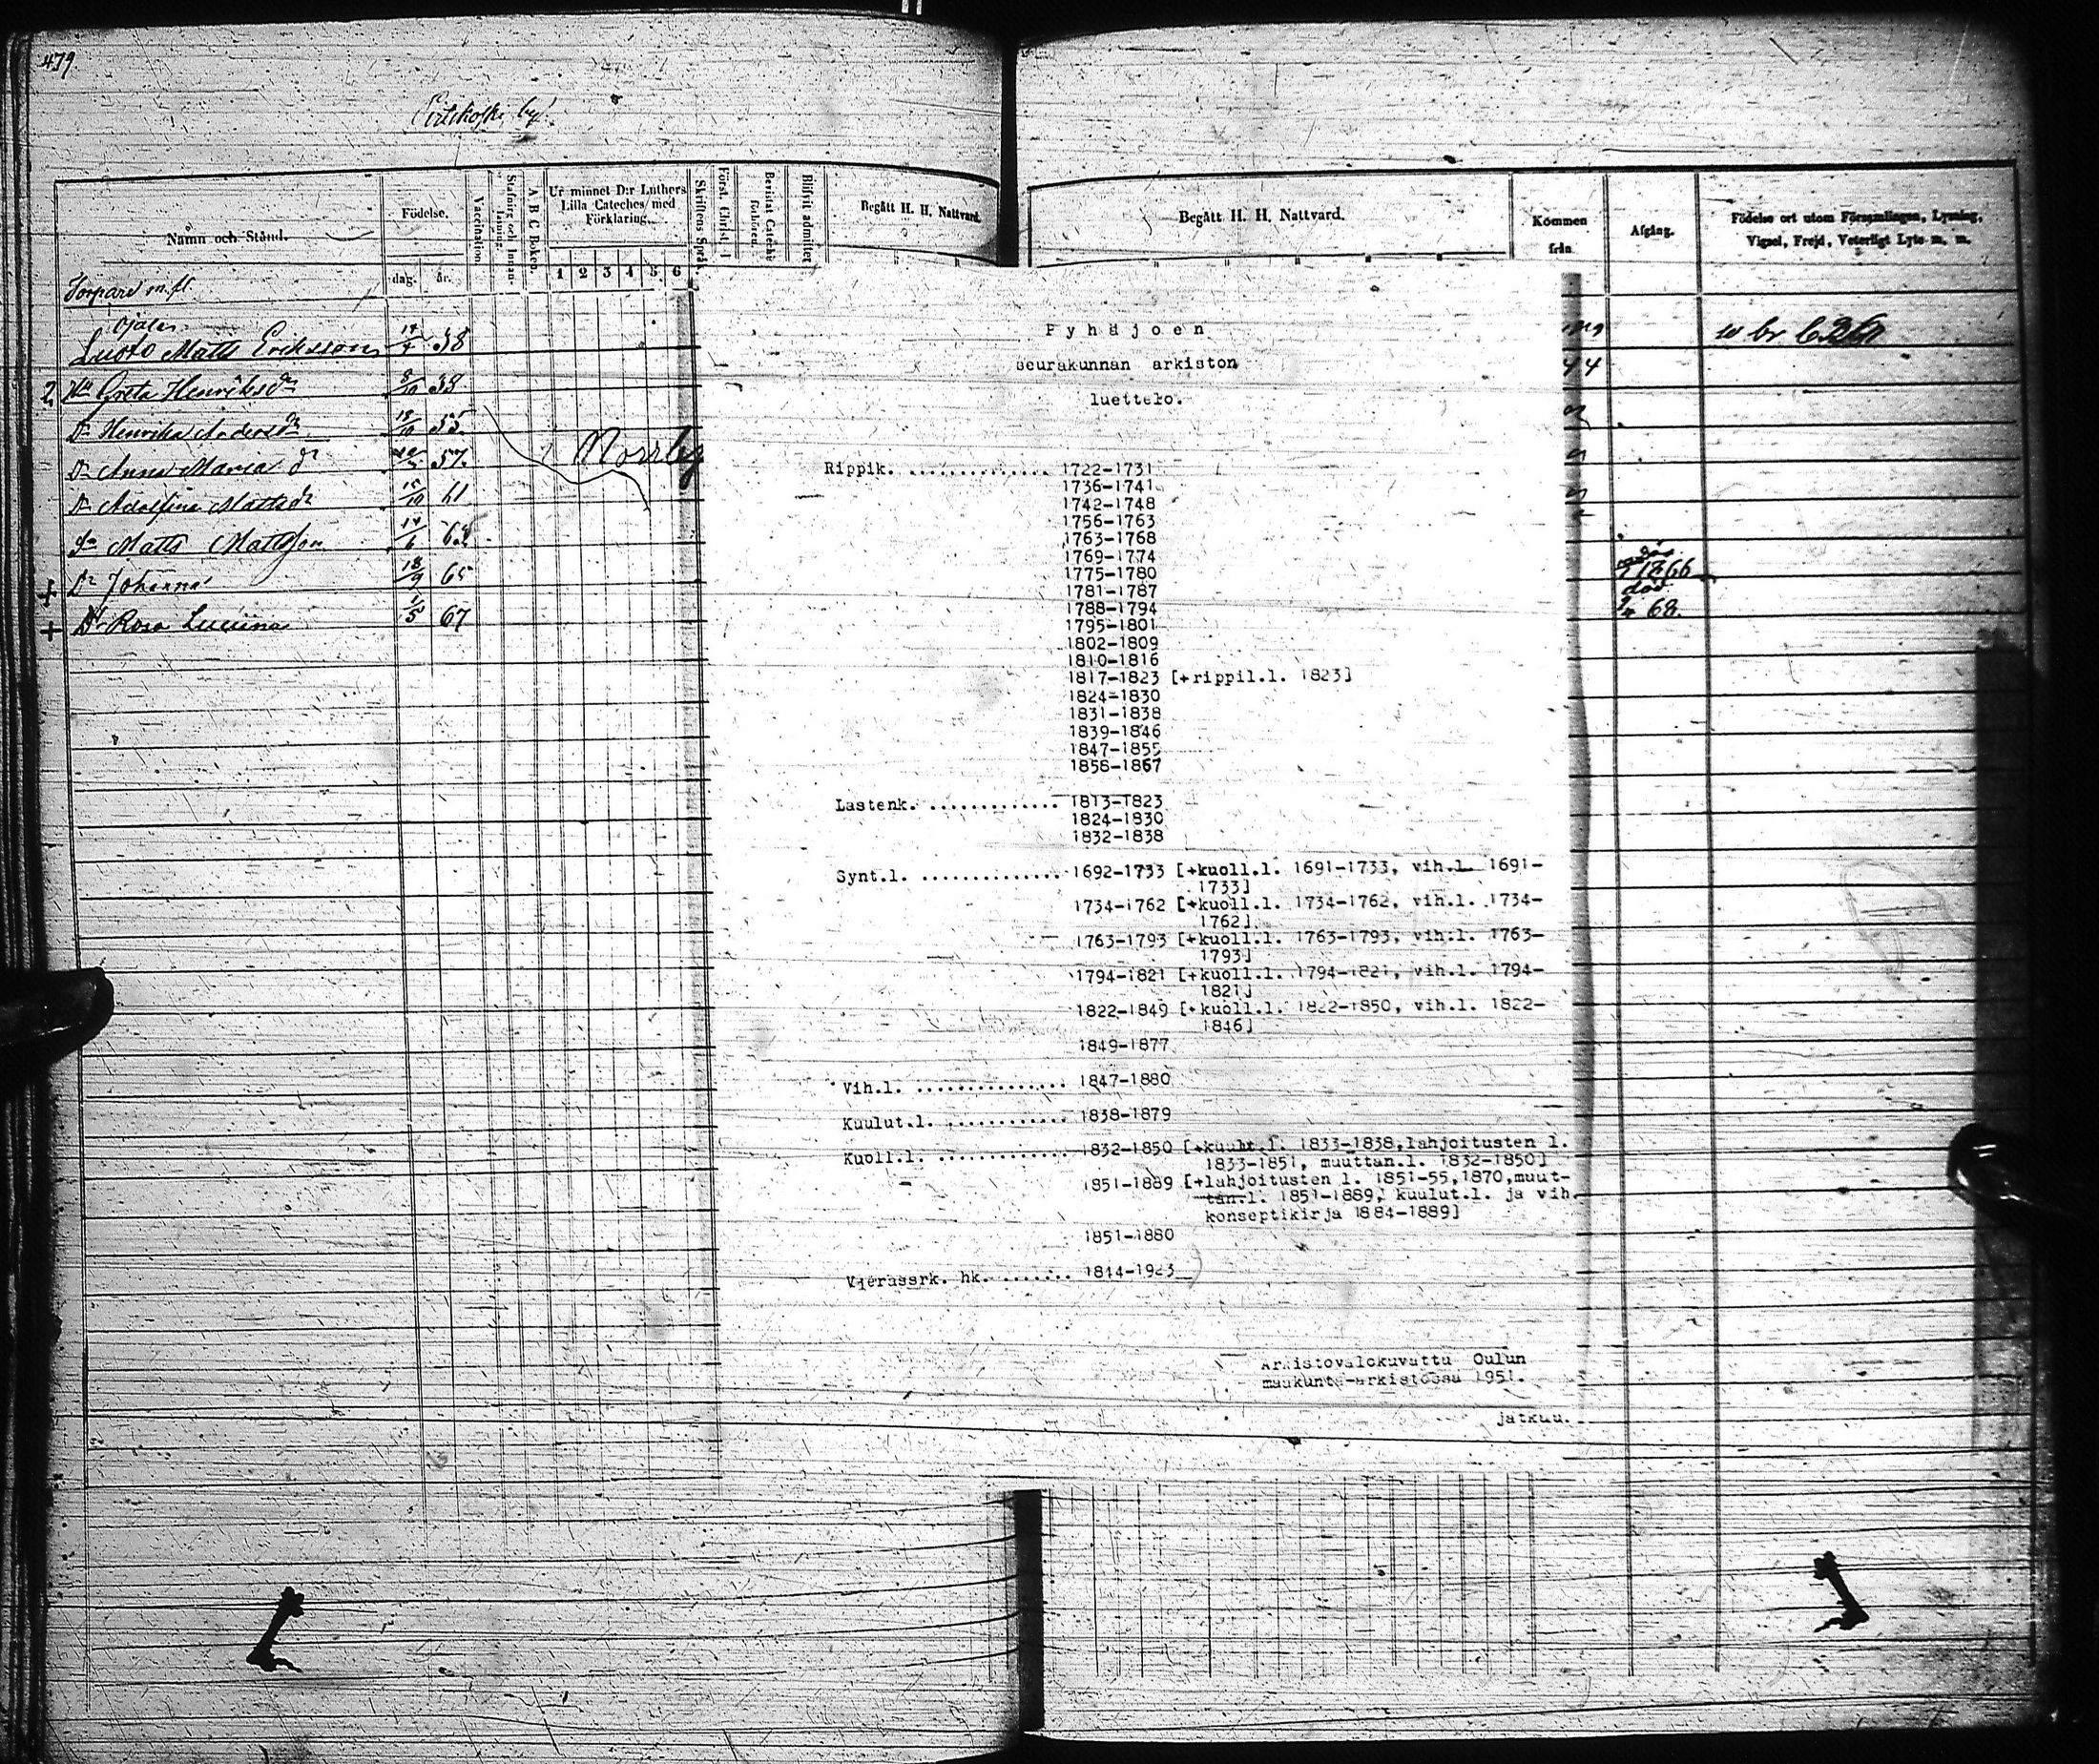 479
by.
Namn och Stånd.
Födelse.
dag. år.
Vaccination.
Stafning och Innanläsning.
A B C Boken.
Ur minnet D:r Luthers
Lilla Cateches med
Förklaring.
1 2 3 4 5 6
Begått H. H. Nattvard.
Begått H. H. Nattvard.
Kommen
från
Afgång.
Födelse ort utom Församlingen, Lysning,
Vigsel, Frejd, Veterligt Lyte m. m.
Torpare m.fl.
Ojala
Luoto Matts Eriksson 38
2 Hu Greta Henriksdr 38
Dr Henrika Andersdr 55
Dr Anna Maria dr 57
Norrby
Dr Adolfina Mattsdr 15/10 61
Sn Matts Mattsson
Dr Johanna 18/9 65
1866
död
Dr Rosa 1/5 67
68
Pyhäjoen
seurakunnan arkiston
luettelo.
Rippik. ............... 1722-1731
1736-1741
1742-1748
1756-1763
1763-1768
1769-1774
1775-1780
1781-1787
1788-1794
1795-1801
1802-1809
1810-1816
1817-1823 [+rippil.l. 1823]
1824-1830
1831-1838
1839-1846
1847-1855
1858-1867
Lastenk. ............. 1813-1823
1824-1830
1832-1838
Synt.l. .............. 1692-1733 [+kuoll.l. 1691-1733, vih.l. 1691-
1733]
1734-1762 [+kuoll.l. 1734-1762, vih.l. 1734-
1762]
1763-1793 [+kuoll.l. 1763-1793, vih.l. 1763-
1793]
1794-1821 [+kuoll.l. 1794-1821, vih.l. 1794-
1821]
1822-1849 [+kuoll.l. 1822-1850, vih.l. 1822-
1846]
1849-1877
Vih.l. ............... 1847-1880
Kuulut.l. ............ 1838-1879
Kuoll.l. ............. 1832-1850 [+kuulut.l. 1833-1838, lahjoitusten l.
1833-1851, muuttan.l. 1832-1850]
1851-1889 [+lahjoitusten l. 1851-55,1870,muut-
tan.l. 1851-1889, kuulut.l. ja vih.
konseptikirja 1884-1889]
1851-1880
Vierassrk. hk. ....... 1844-1923
Arkistovalokuvattu Oulun
maakunta-arkistossa 1951.
jatkuu.